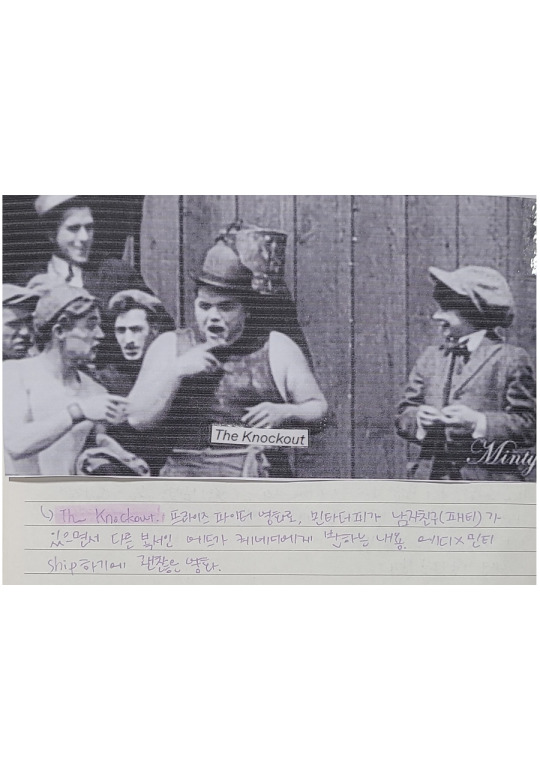 The Knockout
Minty
↳ The Knockout. 프라이즈 파이터 영화로, 민타더피가 남자친구(패티)가
있으면서 다른 복서인 에드가 케네디에게 반하는 내용. 에디×민티
ship하기에 괜찮은 영화.